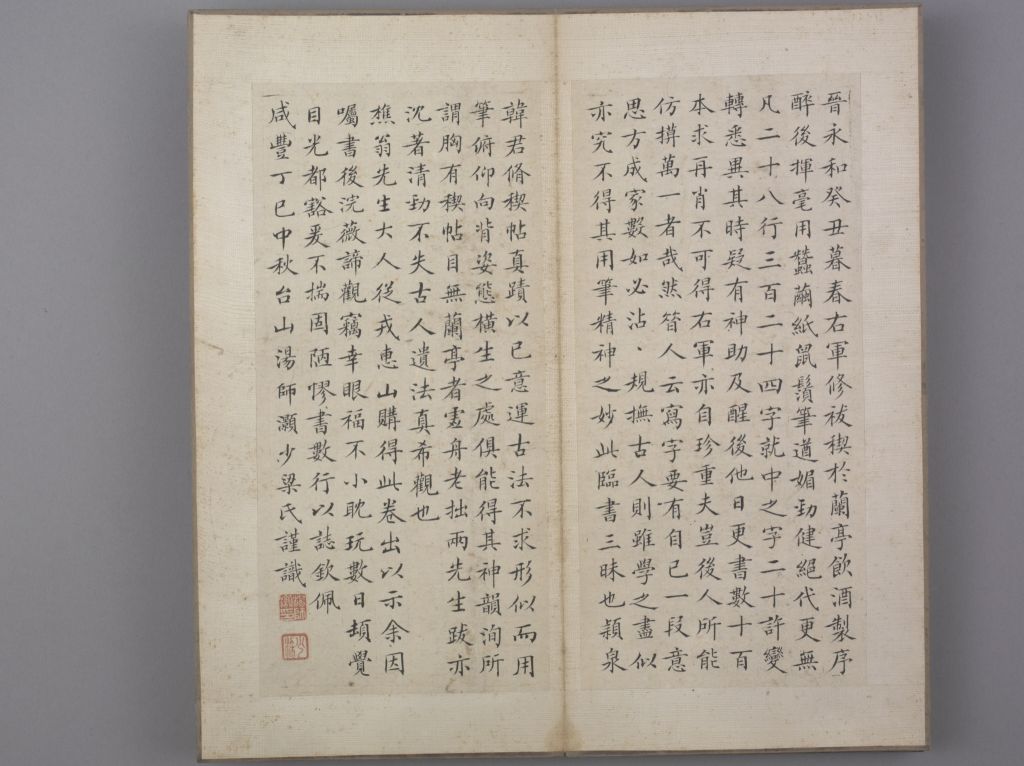 晉永和癸丑暮春右軍修袚禊於蘭亭飲酒製序
醉後揮毫用蠶繭紙鼠鬚筆遒媚勁健絕代更無
凡二十八行三百二十四字就中之字二十許變
轉悉異其時疑有神助及醒後他日更書數十百
本求再肖不可得右軍亦自珍重夫豈後人所能
仿撵萬一者哉然昝人云寫字要有自己一段意
思方成家數如必沾、規撫古人則雖學之盡似
亦究不得其用筆精神之妙此臨書三昧也穎泉
韓君脩稧帖真蹟以己意運古法不求形似而用
筆俯仰向背姿態橫生之處俱能得其神韻洵所
謂胸有稧帖目無蘭亭者虛舟老拙兩先生跋亦
沈著清勁不失古人遺法真希觀也
樵翁先生大人從戎惠山購得此卷出以示余因
囑書後浣薇諦觀竊幸眼福不小耽玩數日頓覺
目光都豁爰不揣固陋憀書數行以誌欽佩
咸豐丁巳中秋台山湯師灝少梁氏謹識